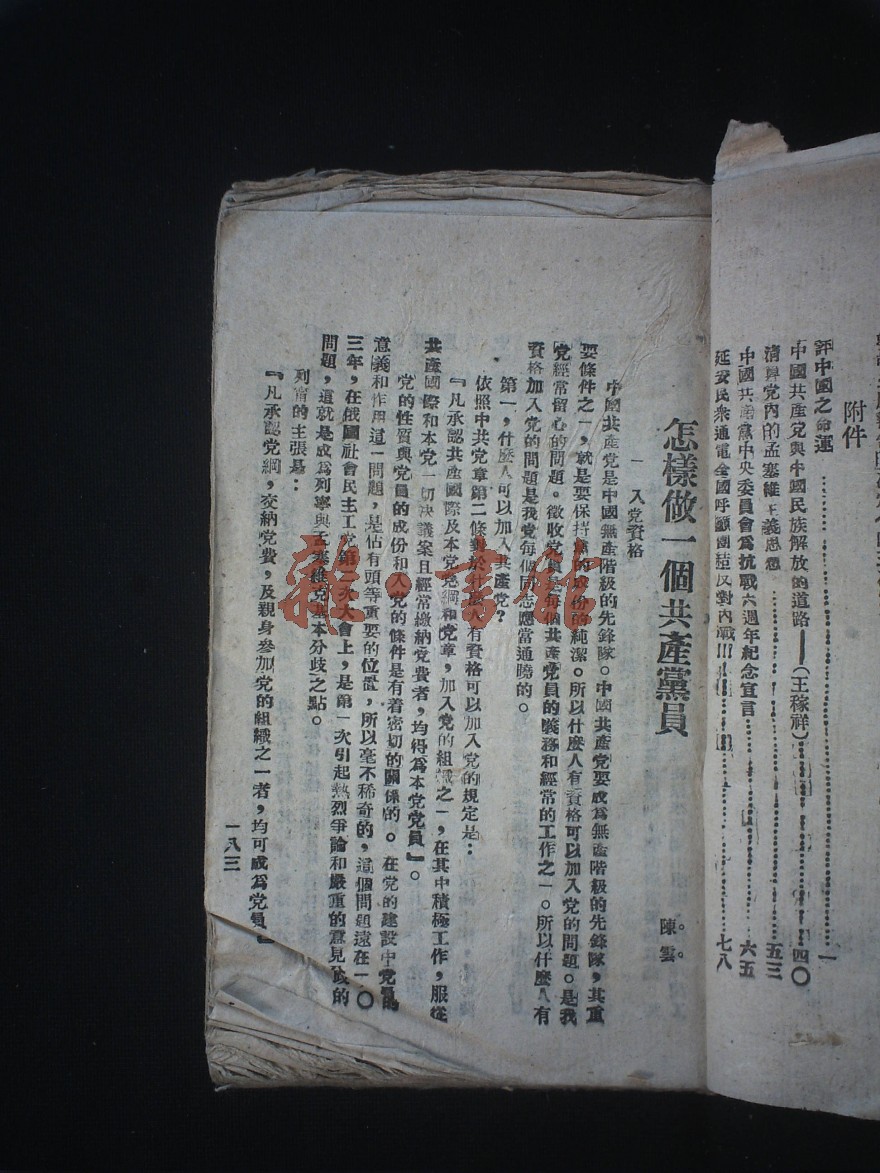 附件
評中國之命運……一
中國共產党與中國民族解放的道路——(王稼祥)……四〇
清算党内的孟塞維主義思想……五三
中國共產黨中央委員會為抗戰六週年紀念宣言……六五
延安民衆通電全國呼籲團結反對内戰!!!……七八
怎樣做一個共產黨員
陳雲
一 入党資格
中國共產党是中國無產階級的先鋒隊。中國共產党要成爲無產階級的先鋒隊,其重
要條件之一,就是要保持党的成份的純潔。所以什麼人有資格可以加入党的問題。是我
党經常留心的問題。徵收党員是每個共產党員的義務和經常的工作之一。所以什麼人有
資格加入党的問題是我党每個同志應當通曉的。
第一,什麼人可以加入共產党?
依照中共党章第二條關於什麼人有資格可以加入党的規定是:
『凡承認共產國際及本党党綱和党章,加入党的組織之一,在其中積極工作,服從
共產國際和本党一切決議案且經常繳納党費者,均得爲本党党員』。
党的性質與党員的成份和入党的條件是有着密切的關係的。在党的建設中党員的
意義和作用這一問題,是佔有頭等重要的位置,所以毫不稀奇的,這個問題遠在一〇
三年,在俄國社會民主工党第二次大會上,是第一次引起熱烈爭論和嚴重的意見分歧的
問題,這就是成爲列寧與孟塞維克基本分歧之點。
列甯的主張是:
『凡承認党綱,交納党費,及親身參加党的組織之一者,均可成爲党員』
一八三
龍の書館